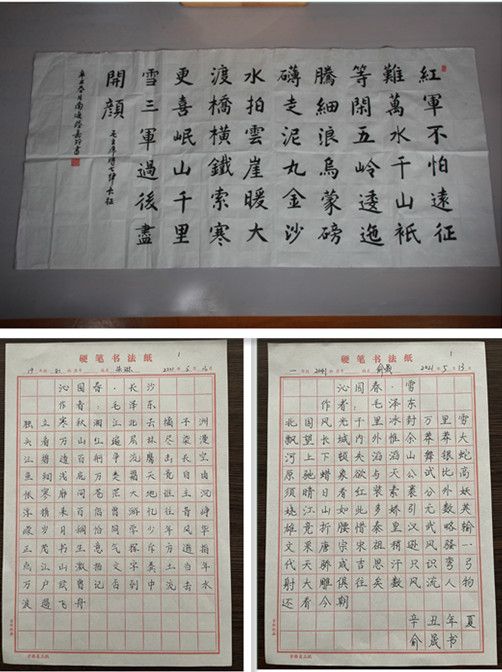 紅軍不怕遠征
難萬水千山祇
等閑五嶺逶迤
騰細浪烏蒙磅
礴走泥丸金沙
水拍雲崖暖大
渡橋橫鐵索寒
更喜岷山千里
雪三軍過後盡
開顏
毛主席詩七律長征
硬笔书法纸
沁园春·长沙
作者:毛泽东
独立寒秋湘江北去橘子洲
头看万山红遍层林尽染漫
江碧透百舸争流鹰击长空
鱼翔浅底万类霜天竞自由
怅寥廓问苍茫大地谁主沉
浮携来百侣曾游忆往昔峥
嵘岁月稠恰同学少年风华
正茂书生意气挥斥方遒指
点江山激扬文字粪土当年
万户侯曾记否到中流击水
浪遏飞舟
硬笔书法纸
沁园春·雪
作者:毛泽东
北国风光千里冰封万里雪
飘望长城内外惟余莽莽大
河上下顿失滔滔山舞银蛇
原驰蜡象欲与天公试比高
须晴日看红装素裹分外妖
娆江山如此多娇引无数英
雄竞折腰惜秦皇汉武略输
文采唐宗宋祖稍逊风骚一
代天骄成吉思汗只识弯弓
射大雕俱往矣数风流人物
还看今朝
辛丑年夏
俞晟书